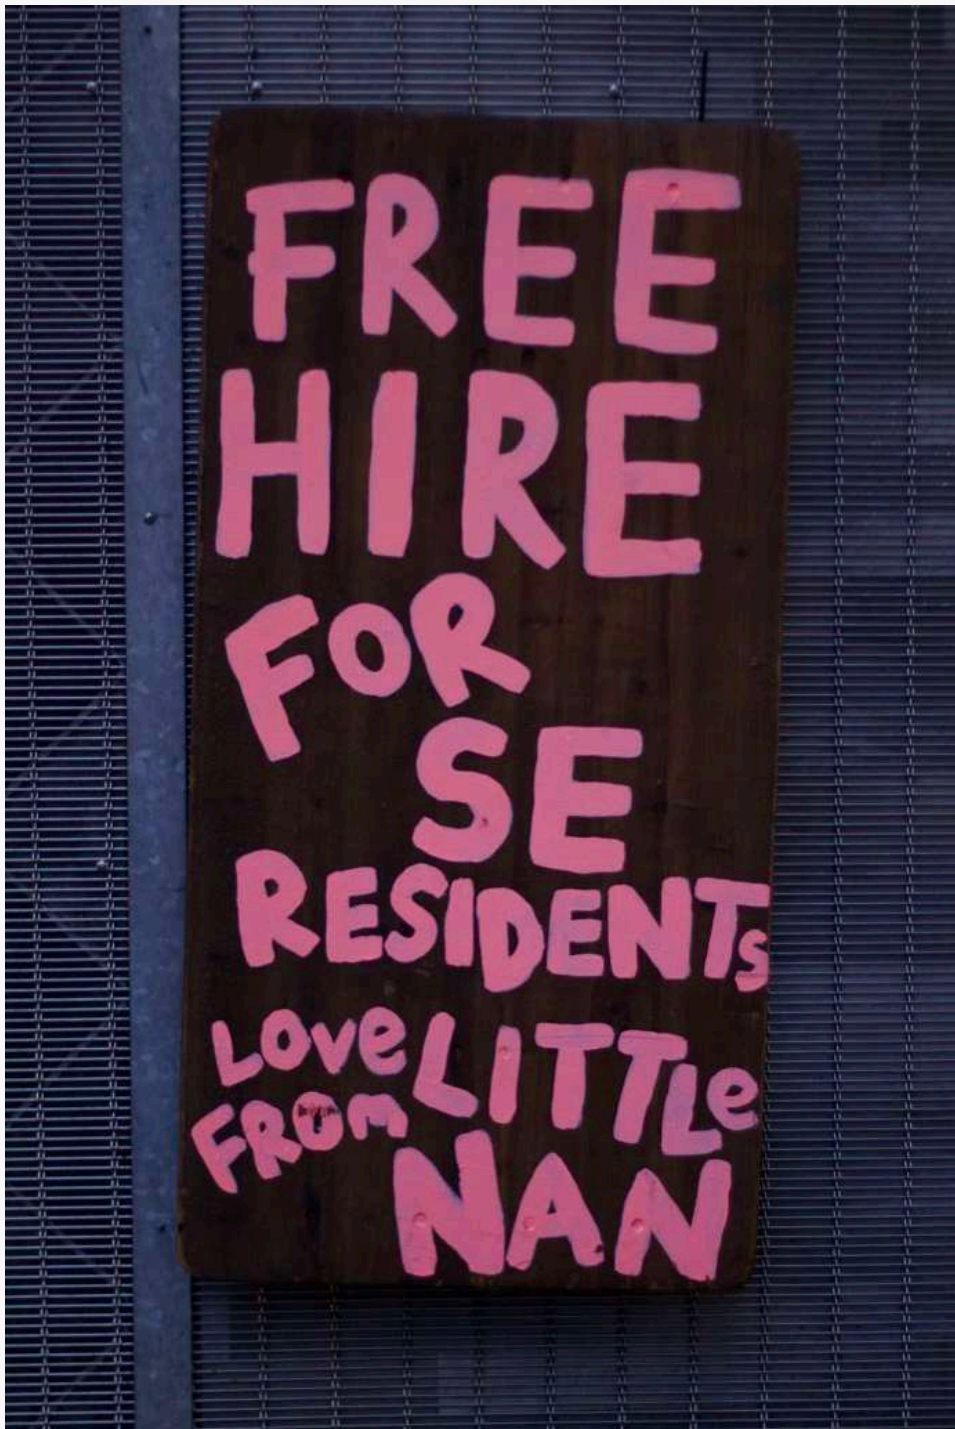 FREE
HIRE
FOR
SE
RESIDENTs
LOVe
FROm
LITTLe
NAN